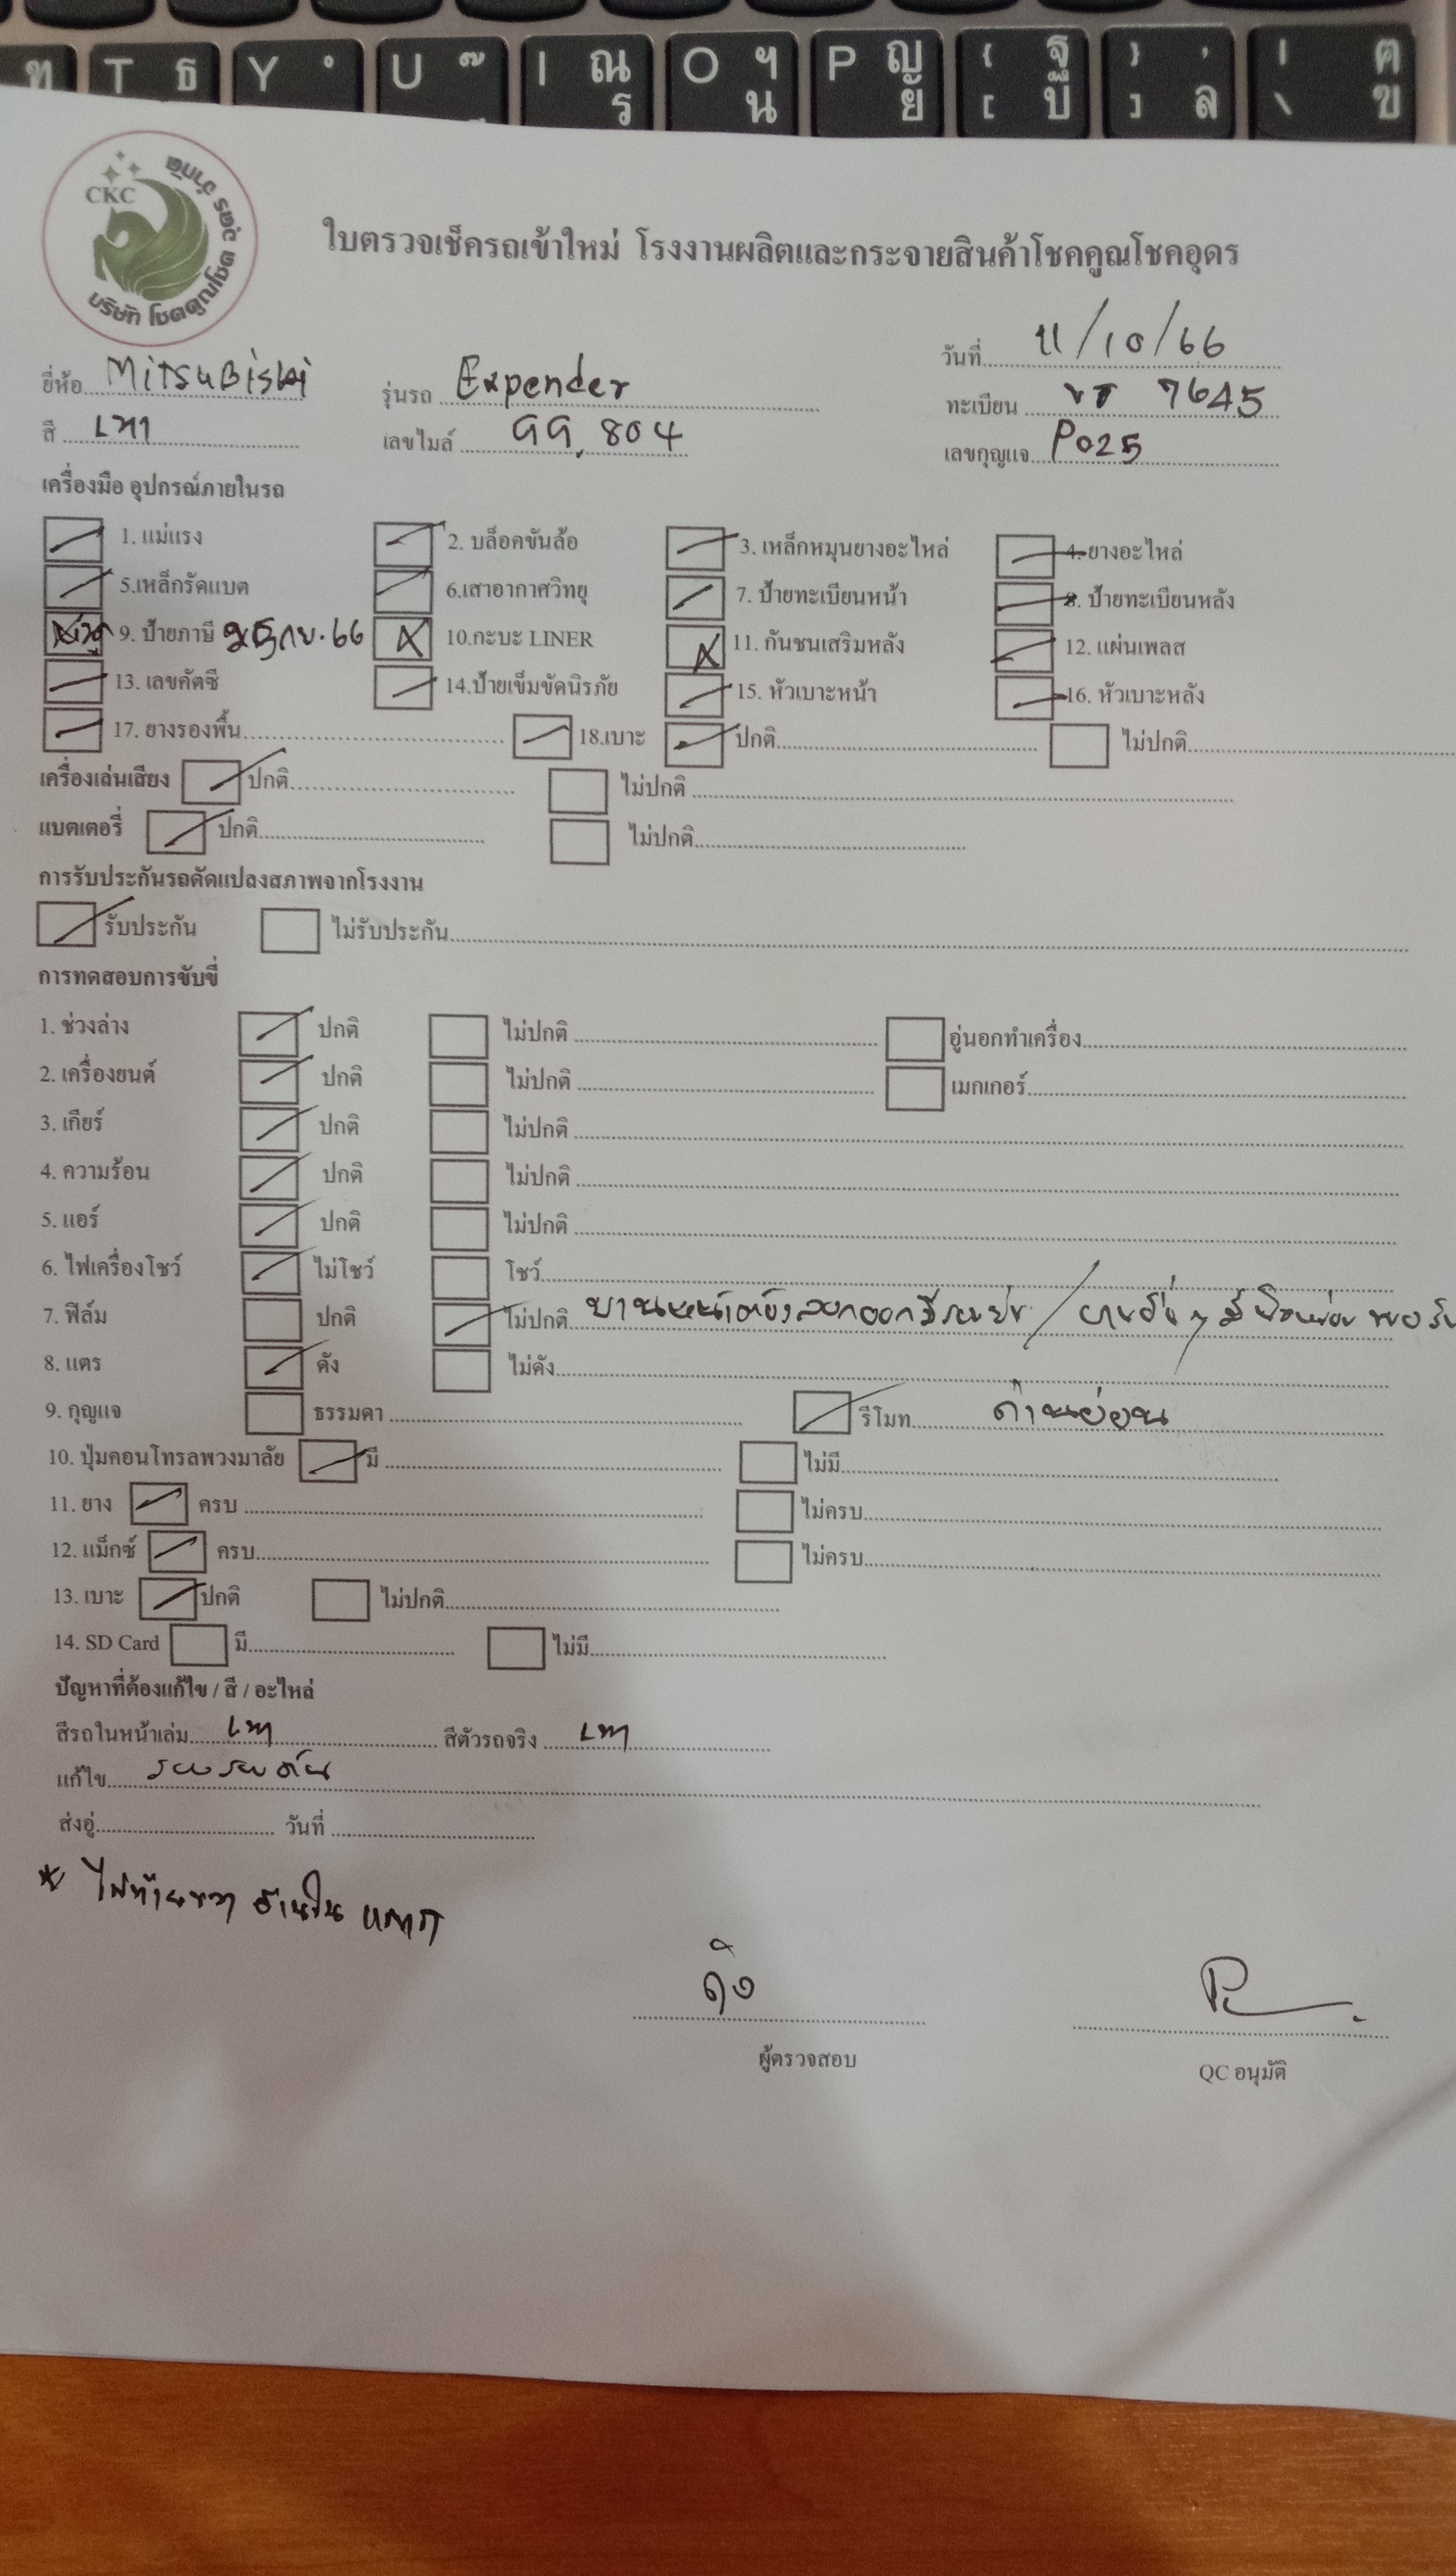 T ธ Y ํ U ๊ I ณ ร O ฯ น P ญ ย { ฐ [ บ } , ] ล | ฅ \ ฃ
CKC
บริษัท โชคคูณโชค อุดร จำกัด
ใบตรวจเช็ครถเข้าใหม่ โรงงานผลิตและกระจายสินค้าโชคคูณโชคอุดร
วันที่ 11/10/66
ยี่ห้อ Mitsubishi รุ่นรถ Expender ทะเบียน 7645
สี เทา เลขไมล์ 99,804 เลขกุญแจ P025
เครื่องมือ อุปกรณ์ภายในรถ
1. แม่แรง 2. บล็อคขันล้อ 3. เหล็กหมุนยางอะไหล่ 4. ยางอะไหล่
5.เหล็กรัดแบต 6.เสาอากาศวิทยุ 7. ป้ายทะเบียนหน้า 8. ป้ายทะเบียนหลัง
9. ป้ายภาษี 25 ก.ย. 66 10.กะบะ LINER 11. กันชนเสริมหลัง 12. แผ่นเพลส
13. เลขคัตซี 14.ป้ายเข็มขัดนิรภัย 15. หัวเบาะหน้า 16. หัวเบาะหลัง
17. ยางรองพื้น 18.เบาะ ปกติ ไม่ปกติ
เครื่องเล่นเสียง ปกติ ไม่ปกติ
แบตเตอรี่ ปกติ ไม่ปกติ
การรับประกันรถดัดแปลงสภาพจากโรงงาน
รับประกัน ไม่รับประกัน
การทดสอบการขับขี่
1. ช่วงล่าง ปกติ ไม่ปกติ อู่นอกทำเครื่อง
2. เครื่องยนต์ ปกติ ไม่ปกติ เมกเกอร์
3. เกียร์ ปกติ ไม่ปกติ
4. ความร้อน ปกติ ไม่ปกติ
5. แอร์ ปกติ ไม่ปกติ
6. ไฟเครื่องโชว์ ไม่โชว์ โชว์
7. ฟิล์ม ปกติ ไม่ปกติ บานหน้าต้องลอกออกมี / บานอื่นๆ มี
8. แตร ดัง ไม่ดัง
9. กุญแจ ธรรมดา รีโมท ถ่านอ่อน
10. ปุ่มคอนโทรลพวงมาลัย มี ไม่มี
11. ยาง ครบ ไม่ครบ
12. แม็กซ์ ครบ ไม่ครบ
13. เบาะ ปกติ ไม่ปกติ
14. SD Card มี ไม่มี
ปัญหาที่ต้องแก้ไข / สี / อะไหล่
สีรถในหน้าเล่ม เทา สีตัวรถจริง เทา
แก้ไข รอบคัน
ส่งอู่ วันที่
* ไฟท้ายขวา ด้านใน แตก
ผู้ตรวจสอบ
QC อนุมัติ